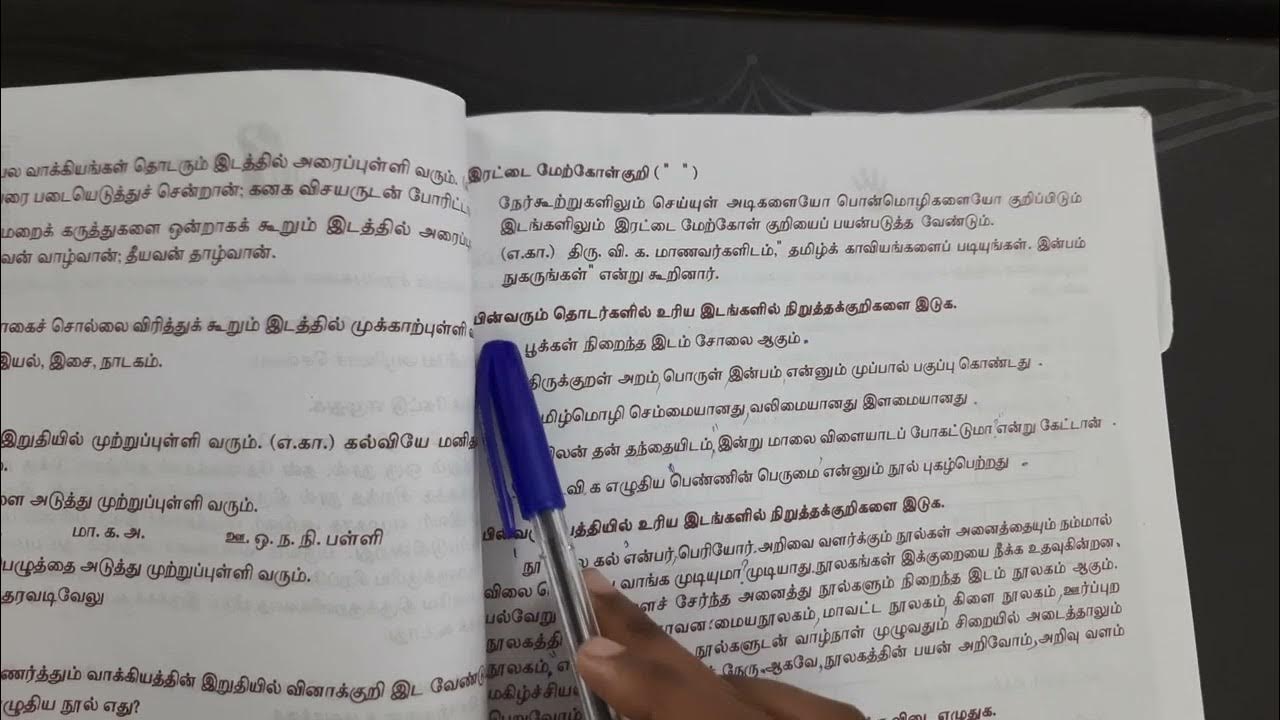 வாக்கியங்கள் தொடரும் இடத்தில் அரைப்புள்ளி வரும்.
படையெடுத்துச் சென்றான்; கனக விசயருடன்
கருத்துகளை ஒன்றாகக் கூறும் இடத்தில்
வாழ்வான்; தீயவன் தாழ்வான்.
சொல்லை விரித்துக் கூறும் இடத்தில் முக்காற்புள்ளி
இசை, நாடகம்.
இறுதியில் முற்றுப்புள்ளி வரும். (எ.கா.) கல்வியே
அடுத்து முற்றுப்புள்ளி வரும்.
மா. க. அ. ஊ. ஒ. ந. நி. பள்ளி
அடுத்து முற்றுப்புள்ளி வரும்.
வாக்கியத்தின் இறுதியில் வினாக்குறி இட
நூல் எது?
இரட்டை மேற்கோள்குறி ( " " )
நேர்கூற்றுகளிலும் செய்யுள் அடிகளையோ பொன்மொழிகளையோ குறிப்பிடும்
இடங்களிலும் இரட்டை மேற்கோள் குறியைப் பயன்படுத்த வேண்டும்.
(எ.கா.) திரு. வி. க. மாணவர்களிடம்," தமிழ்க் காவியங்களைப் படியுங்கள். இன்பம்
நுகருங்கள்" என்று கூறினார்.
பின்வரும் தொடர்களில் உரிய இடங்களில் நிறுத்தக்குறிகளை இடுக.
பூக்கள் நிறைந்த இடம் சோலை ஆகும்.
திருக்குறள் அறம், பொருள், இன்பம், என்னும் முப்பால் பகுப்பு கொண்டது .
செம்மையானது, வலிமையானது இளமையானது .
தன் தந்தையிடம், "இன்று மாலை விளையாடப் போகட்டுமா" என்று கேட்டான் .
வி க எழுதிய பெண்ணின் பெருமை என்னும் நூல் புகழ்பெற்றது .
உரிய இடங்களில் நிறுத்தக்குறிகளை இடுக.
கல்' என்பர், பெரியோர். அறிவை வளர்க்கும் நூல்கள் அனைத்தையும் நம்மால்
விலை வாங்க முடியுமா? முடியாது. நூலகங்கள் இக்குறையை நீக்க உதவுகின்றன.
பல்வேறு சேர்ந்த அனைத்து நூல்களும் நிறைந்த இடம் நூலகம் ஆகும்.
மையநூலகம், மாவட்ட நூலகம், கிளை நூலகம், ஊர்ப்புற
நூலகம், நூல்களுடன் வாழ்நாள் முழுவதும் சிறையில் அடைத்தாலும்
நேரு. ஆகவே, நூலகத்தின் பயன் அறிவோம், அறிவு வளம்
விடை எழுதுக.